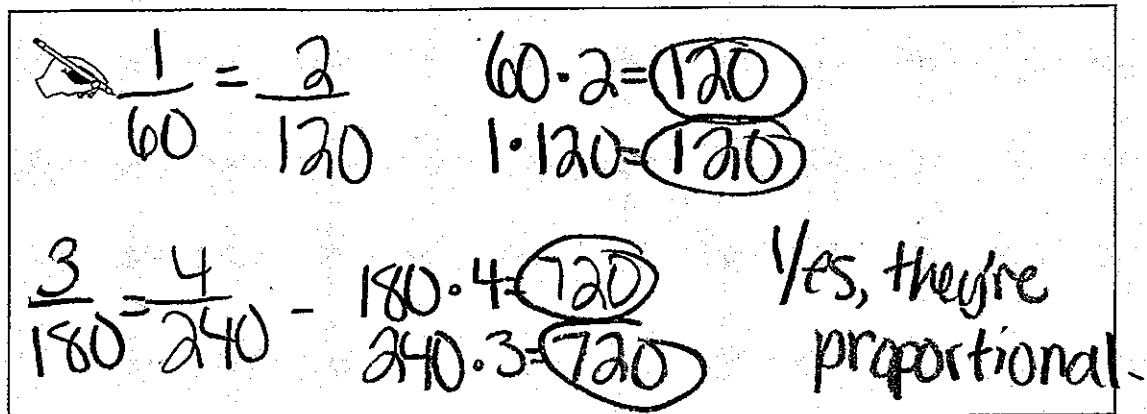 1/60 = 2/120 60·2=120
1·120=120
3/180 = 4/240 - 180·4=720
240·3=720
Yes, they're
proportional.